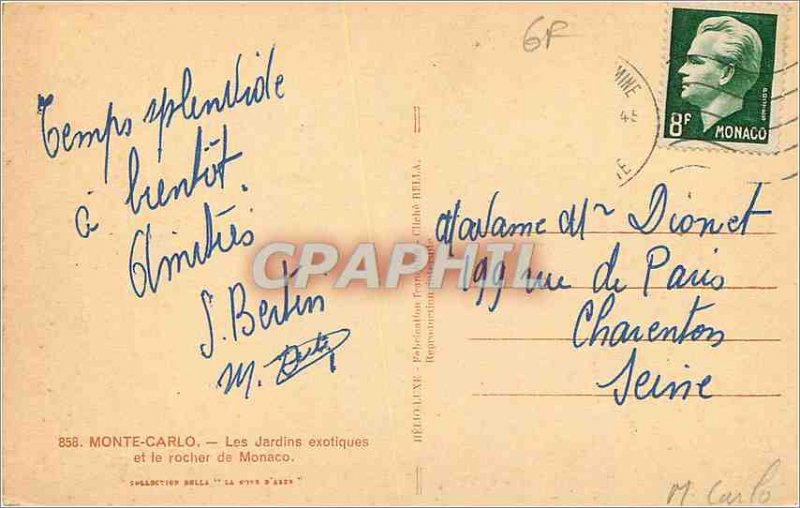 6F
MINE
45
8F
MONACO
Temps splendide
à bientôt.
Amitiés
S. Bertin
M.
Madame Mr Dionet
199 rue de Paris
Charenton
Seine
CPAPHIL
HÉLIO-LUXE - Fabrication - Cliché BELLA.
Reproduction
858. MONTE-CARLO. — Les Jardins exotiques
et le rocher de Monaco.
COLLECTION BELLA "LA COTE D'AZUR"
M. Carlo